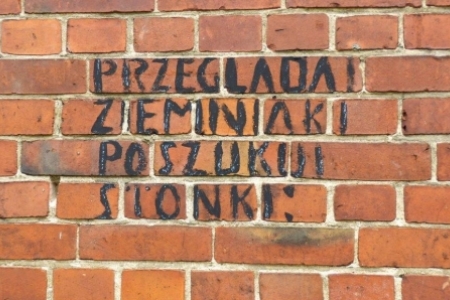 PRZEGLĄDAJ
ZIEMNIAKI
POSZUKUJ
STONKI!